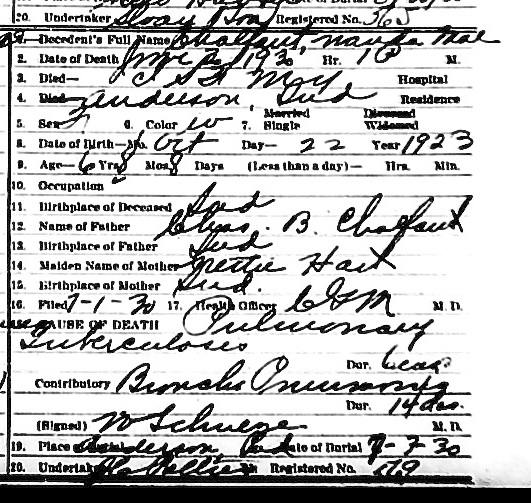 20. Undertaker Sloay Son Registered No. 365
1. Decedent's Full Name Chalfant, Wanda Mae
2. Date of Death June 1930 Hr. 1 P M.
3. Died— Hospital
4. Died Anderson, Ind Residence
5. Sex F 6. Color W 7. Married Single Divorced Widowed
8. Date of Birth—Mo. Oct Day— 22 Year 1923
9. Age— 6 Yrs. 8 Mos. 8 Days (Less than a day)— Hrs. Min.
10. Occupation
11. Birthplace of Deceased Ind
12. Name of Father Chas. B. Chalfant
13. Birthplace of Father Ind
14. Maiden Name of Mother Nettie Hart
15. Birthplace of Mother Ind.
16. Filed 7-1-30 17. Health Officer M. D.
CAUSE OF DEATH Pulmonary
Tuberculoses
Dur.
Contributory Broncho Pneumonia
Dur. 14 das.
(Signed) M. D.
19. Place Burial Anderson Ind Date of Burial 7-7-30
20. Undertaker Registered No.